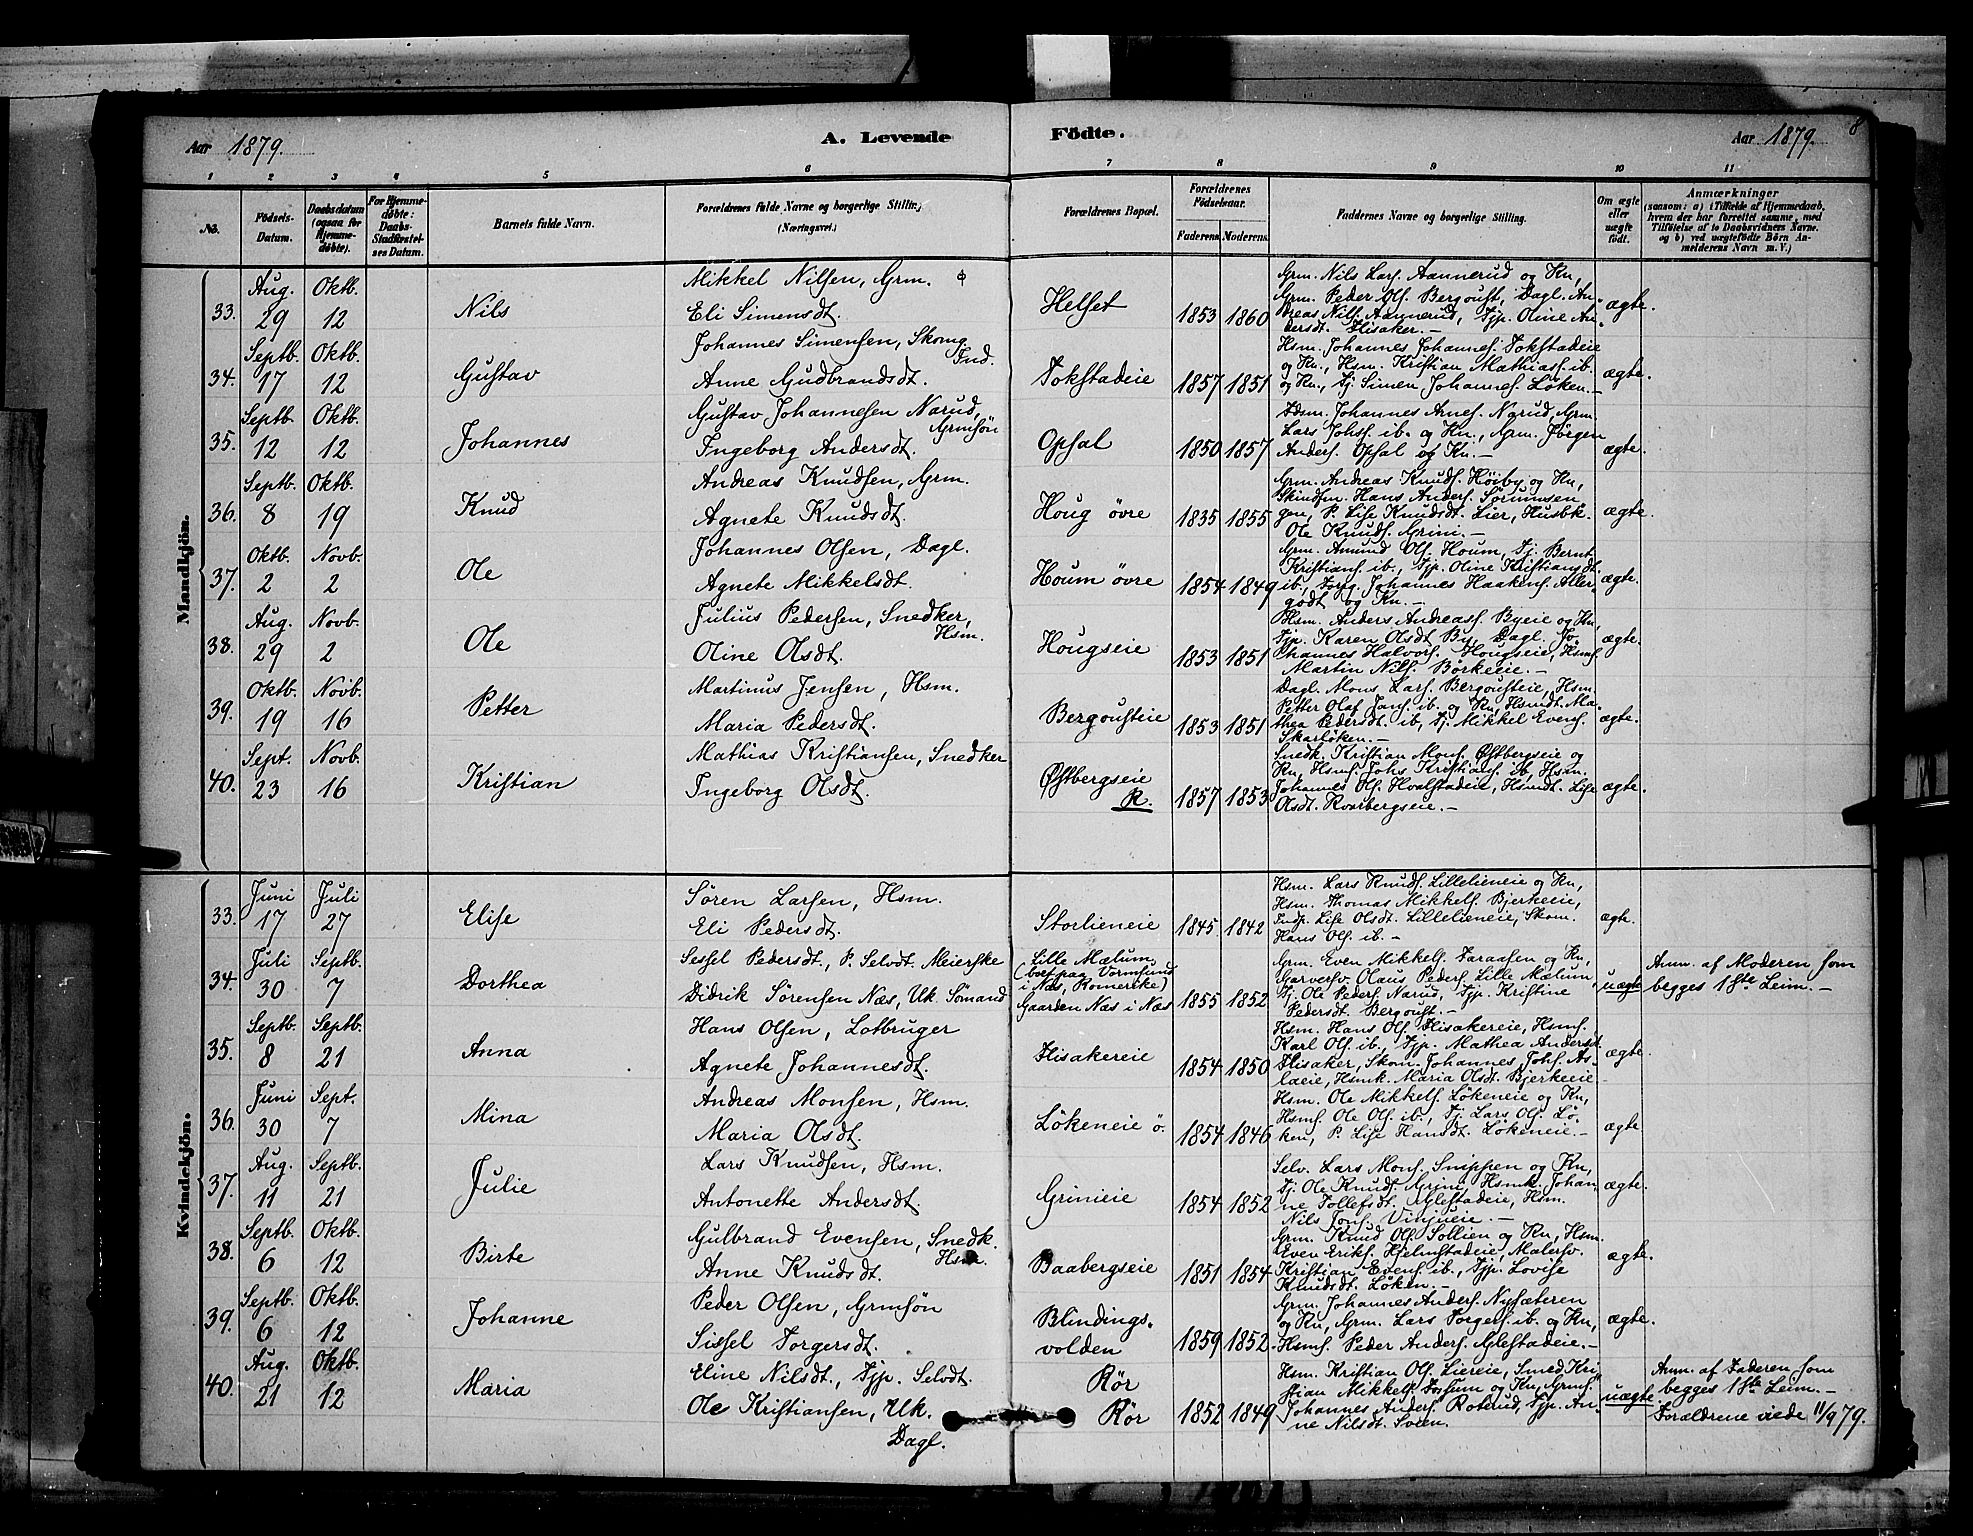 Aar 1879. A. Levende Födte. Aar 1879. 8
1 2 3 4 5 6 7 8 9 10 11
No. Födsels-Datum. Daabsdatum (ogsaa for Hjemme-döbte). For Hjemme-döbte: Daabs-Stadfæstel-ses Datum. Barnets fulde Navn. Forældrenes fulde Navne og borgerlige Stilling (Næringsvei.) Forældrenes Bopæl. Forældrenes Födselsaar. Faderens. Moderens. Faddernes Navne og borgerlige Stilling. Om ægte eller uægte födt. Anmærkninger
(saasom: a) i Tilfælde af Hjemmedaab,
hvem der har forrettet samme, med
Tilföielse af to Daabsvidners Navne.
og b) ved uægtefödte Börn An-
melderens Navn m. V.)
Mandkjön.
33. Aug. 29 Oktb. 12 Nils
Mikkel Nilsen, Grm.
Eli Simensdt.
Helset 1853 1860
Grm. Nils Lars. Aannerud og Kn,
Grm. Peder Ols. Bergoust, Dagl. An-
dreas Nils. Aannerud, Pjp. Oline An-
dersdt. Flisaker.-
ægte.
34. Septb. 17 Oktb. 12 Gustav
Johannes Simensen, Skomg Ind.
Anne Gudbrandsdt.
Tokstadeie 1857 1851
Hsm. Johannes Johannes. Tokstadeie
og Kn., Hsm. Kristian Mathiass. ib.
og Kn., Tj. Simen Johannes. Löken.-
ægte.
35. Septb. 12 Oktb. 12 Johannes
Gustav Johannesen Narud, Grmsön
Ingeborg Andersdt.
Opsal 1850 1857
Hsm. Johannes Arnes. Narud, Grm.
Lars Johs. ib. og Kn., Grm. Jörgen
Anders. Opsal og Kn.-
ægte.
36. Septb. 8 Oktb. 19 Knud
Andreas Knudsen, Grm.
Agnete Knudsdt.
Houg övre 1835 1855
Grm. Andreas Knuds. Höiby og Kn,
Hans Anders. Sörumsen
gen, P. Lise Knudsdt. Lier, Husbk.
Ole Knuds. Grini.-
ægte.
37. Oktb. 2 Novb. 2 Ole
Johannes Olsen, Dagl.
Agnete Mikkelsdt.
Houm övre 1854 1849
Grm. Amund Ols. Houm, Tj. Bernt
Kristians. ib., Tjp. Oline Kristiansdt.
ib., Johannes Haakens. Aller-
godt og Kn.-
ægte.
38. Aug. 29 Novb. 2 Ole
Julius Pedersen, Snedker, Hsm.
Oline Olsdt.
Hougseie 1853 1851
Hsm. Anders Andreass. Byeie og Kn,
Tjp. Karen Olsdt By, Dagl. Jo-
hannes Halvors. Hougseie, Hsms.
Martin Nils. Börkeeie.-
ægte.
39. Oktb. 19 Novb. 16 Petter
Martinus Jensen, Hsm.
Maria Pedersdt.
Bergousteie 1853 1851
Dagl. Mons Lars. Bergousteie, Hsm.
Petter Olaf Jans. ib. og Kn, Hsmdt. Ma-
thea Pedersdt. ib, Tj. Mikkel Evens.
Skarlöken.-
ægte.
40. Sept. 23 Novb. 16 Kristian
Mathias Kristiansen, Snedker
Ingeborg Olsdt.
Østbergseie R. 1857 1853
Snedk. Kristian Mons. Østbergseie og
Kn, Hsms. Johs Kristians. ib, Hsm.
Johannes Ols. Hvalstadeie, Hsmdt. Lise
Olsdt. Kvarbergseie.-
ægte.
Kvindekjön.
33. Juni 17 Juli 27 Elise
Sören Larsen, Hsm.
Eli Pedersdt.
Storlieneie 1845 1842
Hsm. Lars Knuds. Lillelieneie og Kn,
Hsm. Thomas Mikkels. Bjerkeeie,
Indp. Lise Olsdt. Lillelieneie, Skom.
Hans Ols. ib.-
ægte.
34. Juli 30 Septb. 7 Dorthea
Sessel Pedersdt., P. Selvdt. Meierske
Didrik Sörensen Næs, Uk. Sömand
Lille Mælum
(bort paa Vormsund
i Næs, Romerike)
Gaarden Næs i Næs 1855 1852
Grm. Even Mikkels. Faraasen og Kn,
Garversv. Olaus Peders. Lille Mælum,
Tj. Ole Peders. Narud, Tjp. Kristine
Pedersdt. Bergoust.-
uægte
Anm. af Moderen som
begges 1ste Leim.-
35. Septb. 8 Septb. 21 Anna
Hans Olsen, Lotbruger
Agnete Johannesdt.
Flisakereie 1854 1850
Hsm. Hans Ols. Flisakereie, Hsms.
Karl Ols. ib., Tjp. Mathea Andersdt.
Flisaker, Skom. Johannes Johs. As-
laeie, Hsmk. Maria Olsdt. Bjerkeeie
ægte.
36. Juni 30 Sept. 7 Mina
Andreas Monsen, Hsm.
Maria Olsdt.
Lökeneie ö. 1854 1846
Hsm. Ole Mikkels. Lökeneie og Kn,
Hsms. Ole Ols. ib., Tj. Lars Ols. Lö-
ken, P. Lise Hansdt. Lökeneie.-
ægte
37. Aug. 11 Septb. 21 Julie
Lars Knudsen, Hsm.
Antonette Andersdt
Grinieie 1854 1852
Selv. Lars Mons. Snippen og Kn,
Tj. Ole Knuds. Grini, Hsmk. Johan-
ne Tollefsdt. Alestadeie, Hsm.
Nils Jons. Vinjueie.-
ægte.
38. Septb. 6 Oktb. 12 Birte
Gulbrand Evensen, Snedk. Hsm.
Anne Knudsdt.
Baabergseie 1851 1854
Grm. Knud Ols. Sollien og Kn, Hsm.
Even Eriks. Hjelmstadeie, Malersv.
Kristian Evens. ib., Tjp. Lovise
Knudsdt. Löken.-
ægte.
39. Septb. 6 Oktb. 12 Johanne
Peder Olsen, Grmsön
Sissel Torgersdt.
Blindings-
volden 1859 1852.
Grm. Johannes Anders. Nysæteren
og Kn, Grm. Lars Torgers. ib. og Kn,
Hsms. Peder Anders. Alestadeie.-
ægte.
40. Aug. 21 Oktb. 12 Maria
Eline Nilsdt., Tjp. Selvdt.
Ole Kristiansen, Uk. Dagl.
Rör
Rör 1852 1849
Hsm. Kristian Ols. Liereie, Smed Kri-
stian Mikkels. Fossum og Kn, Grms.
Johannes Anders. Roterud, Tjp. An-
ne Nilsdt. Sveen.
uægte
Anm. af Faderen som
begges 1ste Leim.-
Forældrene viede 11/9 79.